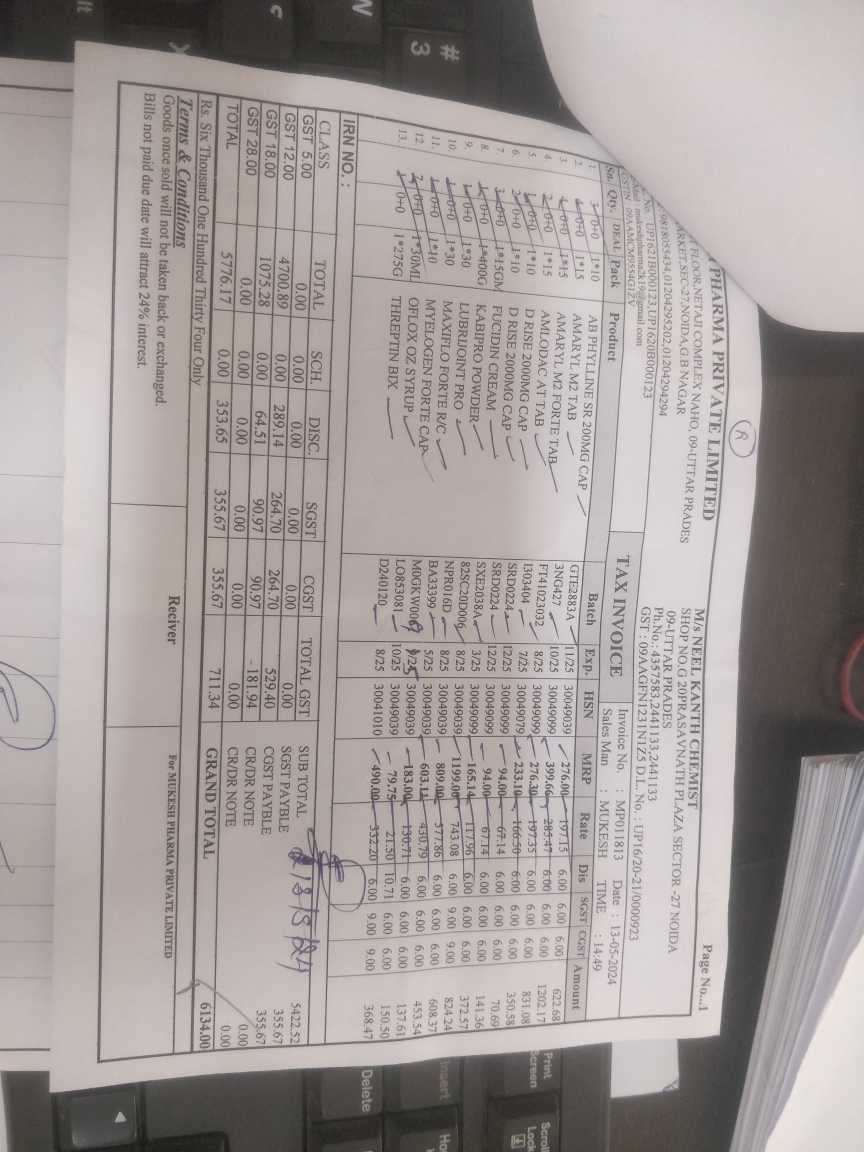 PHARMA PRIVATE LIMITED
FLOOR,NETAJI COMPLEX NAHO, 09-UTTAR PRADES
MARKET,SEC-27,NOIDA,G.B NAGAR
9818055434,01204295202,01204294294
No. : UP1621B000123,UP1620B000123
mukeshpharma2k19@gmail.com
GSTIN : 09AAMCM9554G1ZV
R
Page No...1
M/s NEEL KANTH CHEMIST
SHOP NO.G 20PRASAVNATH PLAZA SECTOR -27 NOIDA
09-UTTAR PRADES
Ph.No.: 4357583,2441133,2441133
GST : 09AAGFN1231N1Z5 D.L. No. : UP16/20-21/0000923
TAX INVOICE
Invoice No. : MP011813 Date : 13-05-2024
Sales Man : MUKESH TIME : 14:49
Sn. Qty. DEAL Pack Product Batch Exp. HSN MRP Rate Dis SGST CGST Amount
1. 3 0+0 1*10 AB PHYLLINE SR 200MG CAP GTE2883A 11/25 30049039 276.00 197.15 6.00 6.00 6.00 622.68
2. 4 0+0 1*15 AMARYL M2 TAB 3NG427 10/25 30049099 399.66 285.47 6.00 6.00 6.00 1202.17
3. 4 0+0 1*15 AMARYL M2 FORTE TAB FT41023032 8/25 30049099 276.30 197.35 6.00 6.00 6.00 831.08
4. 2 0+0 1*15 AMLODAC AT TAB I303404 7/25 30049079 233.10 166.50 6.00 6.00 6.00 350.58
5. 1 0+0 1*10 D RISE 2000MG CAP SRD0224 12/25 30049099 94.00 67.14 6.00 6.00 6.00 70.69
6. 2 0+0 1*10 D RISE 2000MG CAP SRD0224 12/25 30049099 94.00 67.14 6.00 6.00 6.00 141.36
7. 3 0+0 1*15GM FUCIDIN CREAM SXE2038A 3/25 30049099 165.14 117.96 6.00 6.00 6.00 372.57
8. 1 0+0 1*400G KABIPRO POWDER 82SC20D006 8/25 30049099 1199.00 743.08 6.00 9.00 9.00 824.24
9. 1 0+0 1*30 LUBRIJOINT PRO NPR016D 8/25 30049039 809.00 577.86 6.00 6.00 6.00 608.37
10. 1 0+0 1*30 MAXIFLO FORTE R/C BA33399 5/25 30049039 603.12 430.79 6.00 6.00 6.00 453.54
11. 1 0+0 1*10 MYELOGEN FORTE CAP M0GKW0069 9/25 30049039 183.00 130.71 6.00 6.00 6.00 137.61
12. 7 0+0 1*30ML OFLOX OZ SYRUP LO853081 10/25 30049039 79.75 21.50 10.71 6.00 6.00 150.50
13. 1 0+0 1*275G THREPTIN BIX D240120 8/25 30041010 490.00 332.20 6.00 9.00 9.00 368.47
IRN NO. :
CLASS TOTAL SCH. DISC. SGST CGST TOTAL GST
GST 5.00 0.00 0.00 0.00 0.00 0.00 0.00
GST 12.00 4700.89 0.00 289.14 264.70 264.70 529.40
GST 18.00 1075.28 0.00 64.51 90.97 90.97 181.94
GST 28.00 0.00 0.00 0.00 0.00 0.00 0.00
TOTAL 5776.17 0.00 353.65 355.67 355.67 711.34
SUB TOTAL 5422.52
SGST PAYBLE 355.67
CGST PAYBLE 355.67
CR/DR NOTE 0.00
CR/DR NOTE 0.00
Rs. Six Thousand One Hundred Thirty Four Only
GRAND TOTAL 6134.00
Terms & Conditions
Goods once sold will not be taken back or exchanged.
Bills not paid due date will attract 24% interest.
Reciver
For MUKESH PHARMA PRIVATE LIMITED
Print Screen
Scroll Lock
Insert
Delete
#
3